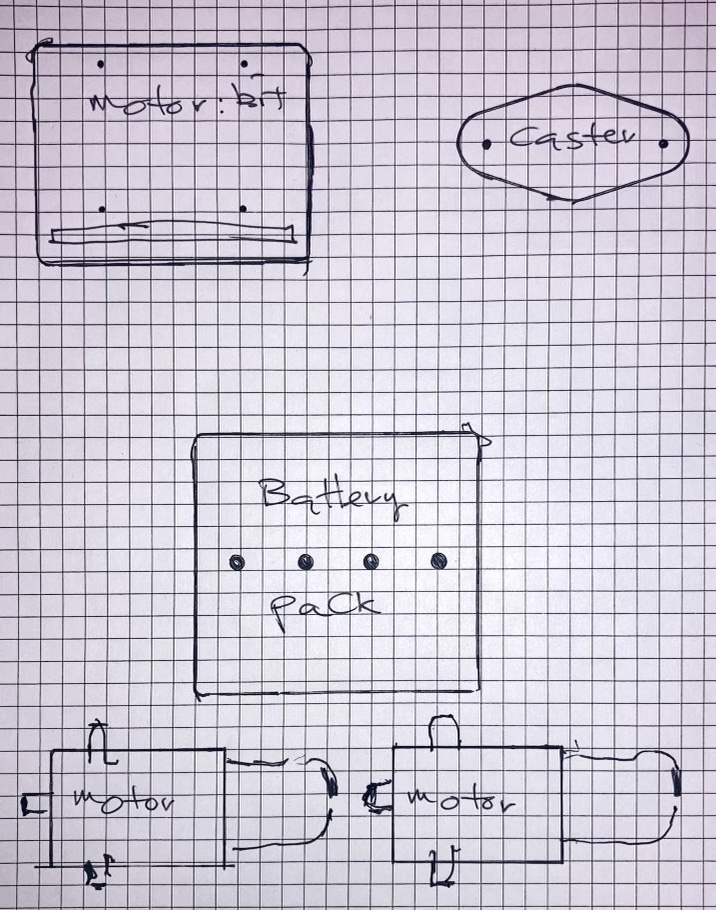 motor:bit
Caster
Battery
pack
motor
motor